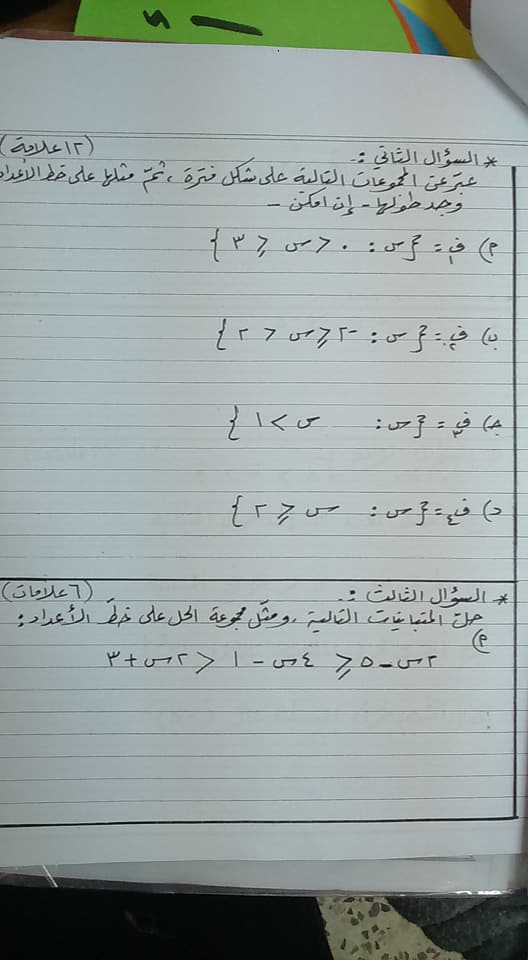 * السؤال الثاني :- (١٢ علامة)
عبّر عن المجموعات التالية على شكل فترة ، ثمّ مثلها على خط الأعداد
وجد طولها - إن امكن -
أ) ف١ = {س : ٠ < س ≤ ٣ }
ب) ف٢ = {س : -٢ ≤ س < ٢ }
جـ) ف٣ = {س : س > ١ }
د) ف٤ = {س : س ≤ ٢ }
* السؤال الثالث :- (٦ علامات)
حلّ المتباينات التالية ، ومثّل مجموعة الحل على خطّ الأعداد :
أ)
٢س - ٥ ≤ ٤س - ١ < ٢س + ٣